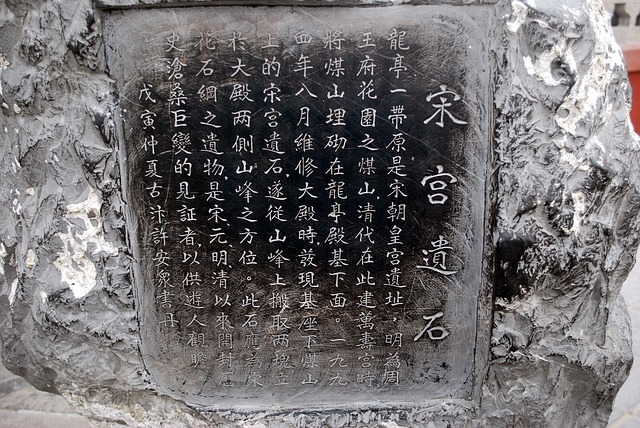 宋宮遺石
龍亭一帶原是宋朝皇宮遺址，明為周
王府花園之煤山，清代在此建萬壽宮時
將煤山埋砌在龍亭殿基下面。一九九
四年八月維修大殿時，發現基座下煤山
上的宋宮遺石，遂從山峰上搬取两塊立
於大殿两側山峰之方位。此石應為宋
花石綱之遺物，是宋、元、明、清以來開封歷
史滄桑巨變的見証者，以供遊人觀瞻
戊寅仲夏古汴許安泉書丹